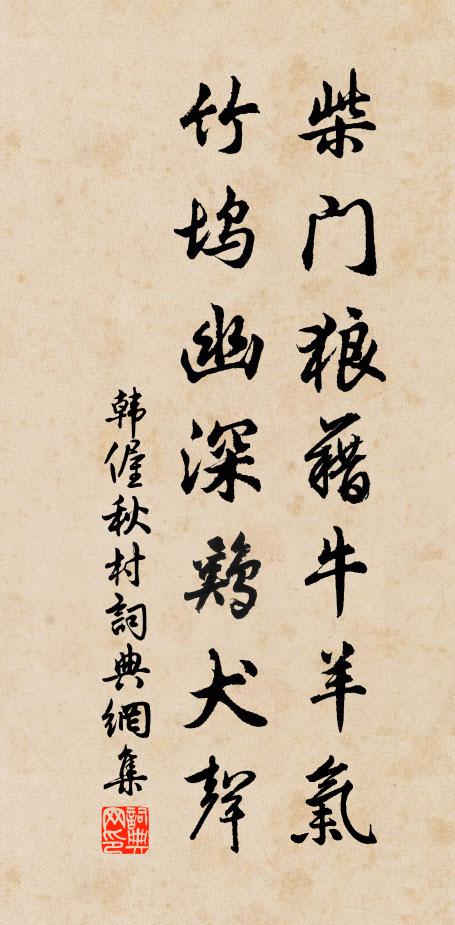 柴门狼藉牛羊氣
竹坞幽深鷄犬聲
韩偓秋村詞典網集
詞典网印